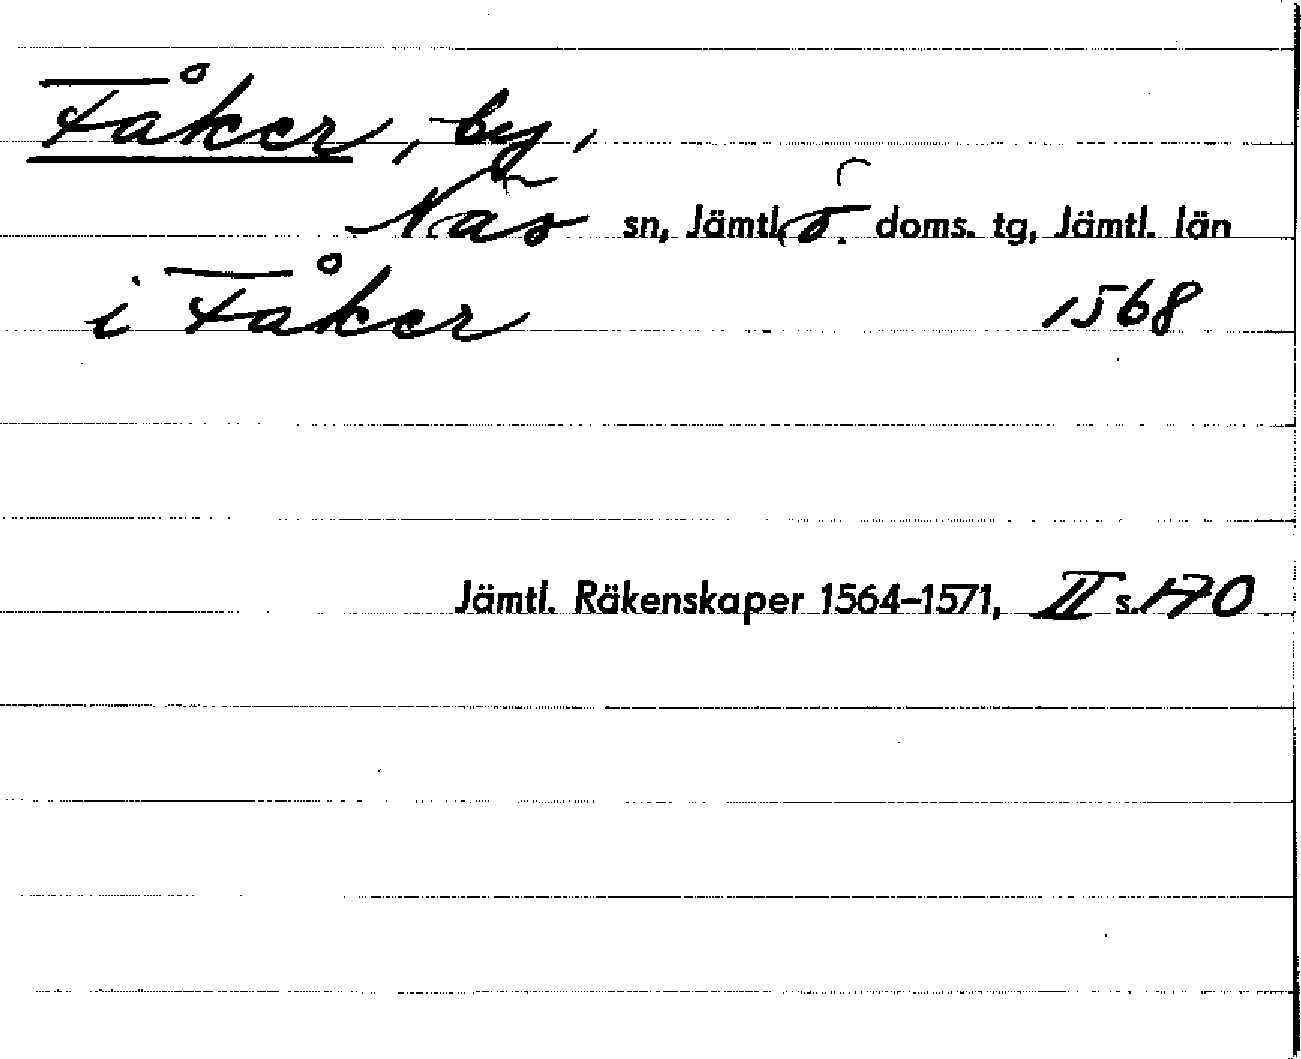 Fåker, by,
Näs sn, Jämtl. ö. doms. tg, Jämtl. län
i Fåker 1568
Jämtl. Räkenskaper 1564-1571, II s. 170